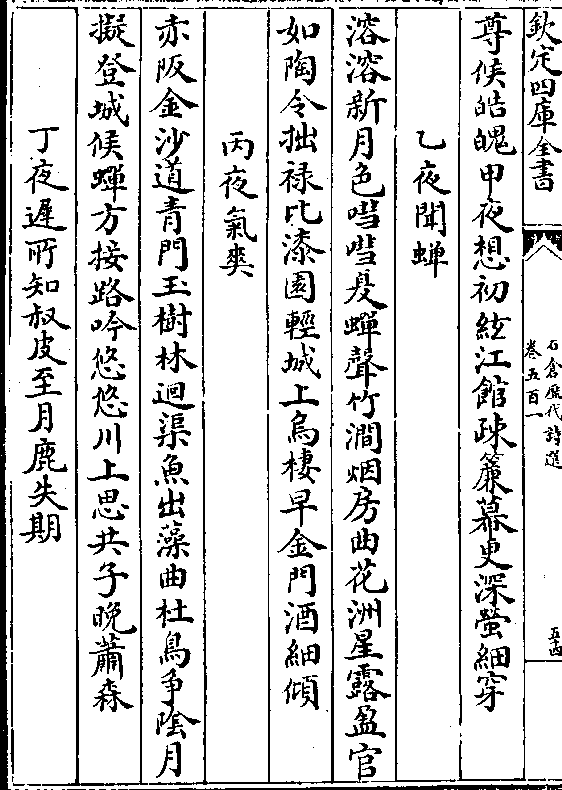 欽定四庫全書
石倉歷代詩選
卷五百一
五四
尊候皓魄甲夜想初絃江館疎簾幕更深螢細穿
乙夜聞蟬
溶溶新月色嘒嘒夏蟬聲竹澗烟房曲花洲星露盈官
如陶令拙禄比漆園輕城上烏棲早金門酒細傾
丙夜氣爽
赤阪金沙道青門玉樹林迴渠魚出藻曲杜鳥爭陰月
擬登城候蟬方接路吟悠悠川上思共子晩蕭森
丁夜遲所知叔皮至月鹿失期